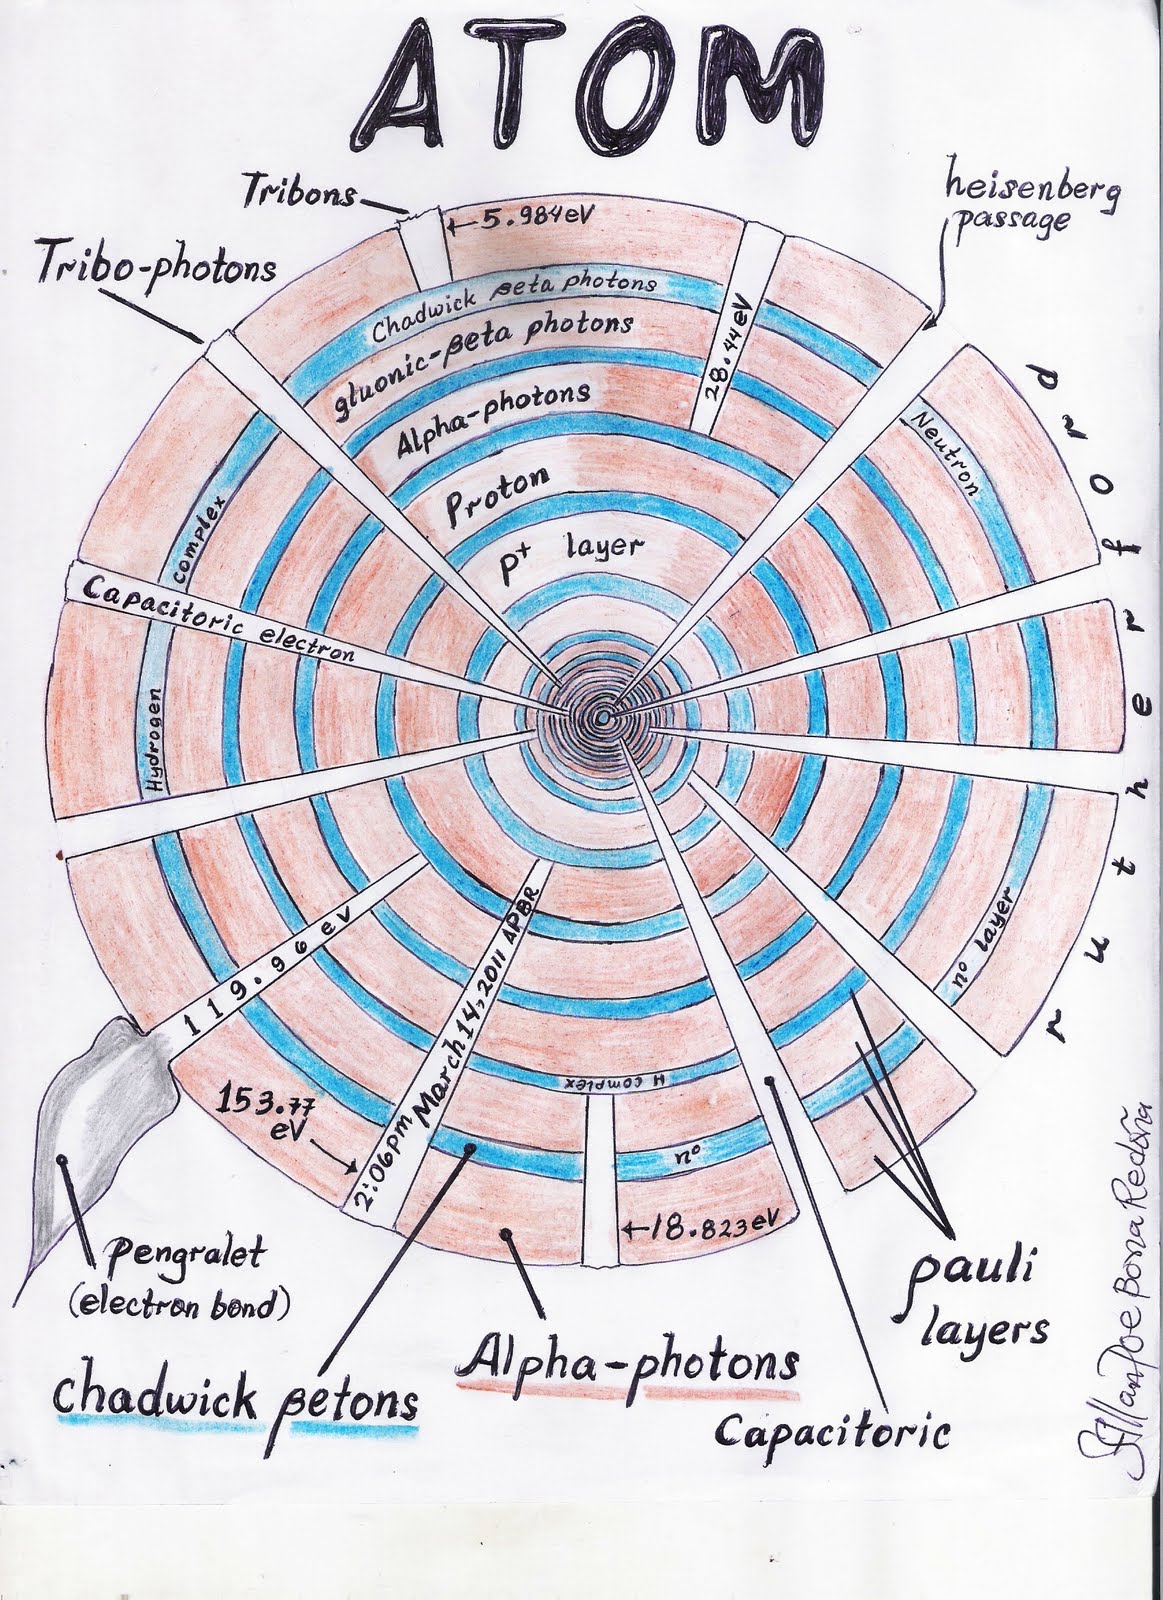 ATOM
Tribons
5.984eV
heisenberg
passage
Tribo-photons
Chadwick βeta photons
gluonic-βeta photons
28.44eV
Alpha-photons
Proton
p+ layer
Neutron
rutherford
complex
Capacitoric electron
Hydrogen
n° layer
119.96 eV
2:06pm March 14, 2011 APBR
H complex
153.77
eV
n°
18.823eV
pengralet
(electron bond)
pauli
layers
Alpha-photons
Chadwick βetons
Capacitoric